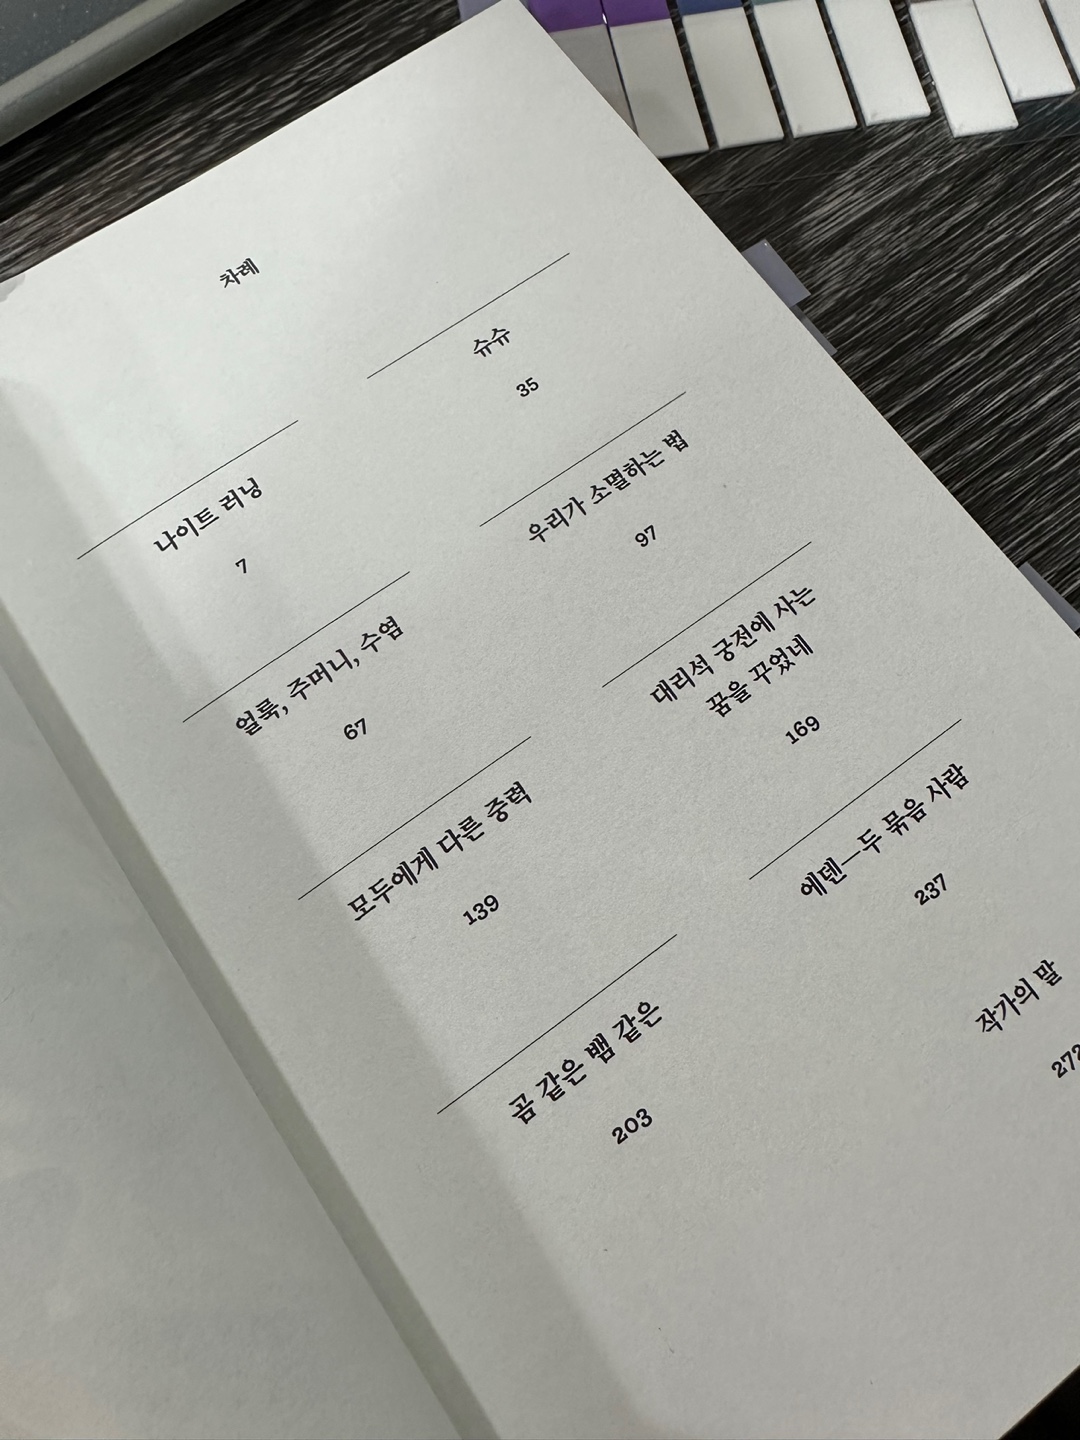 차례
나이트 러닝
7
슈슈
35
얼룩, 주머니, 수염
67
우리가 소멸하는 법
97
모두에게 다른 중력
139
대리석 궁전에 사는
꿈을 꾸었네
169
곰 같은 뱀 같은
203
에덴—두 묶음 사람
237
작가의 말
272